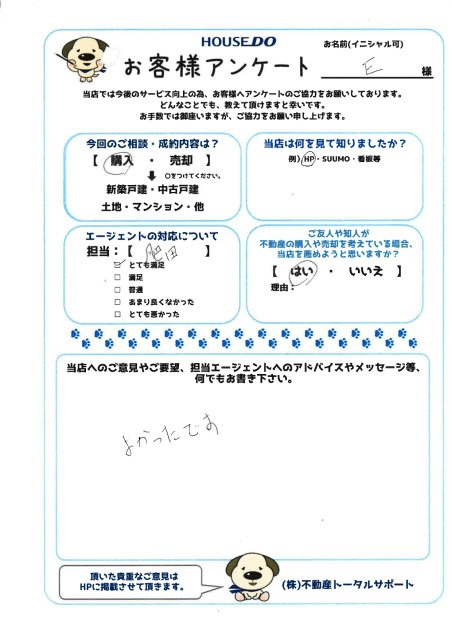 HOUSEDO
お客様アンケート
お名前(イニシャル可)
E 様
当店では今後のサービス向上の為、お客様へアンケートのご協力をお願いしております。
どんなことでも、教えて頂けますと幸いです。
お手数では御座いますが、ご協力をお願い申し上げます。
今回のご相談・成約内容は?
【 購入 ・ 売却 】
○をつけてください。
新築戸建・中古戸建
土地・マンション・他
当店は何を見て知りましたか?
例)HP・SUUMO・看板等
エージェントの対応について
担当:【 肥田 】
☑ とても満足
□ 満足
□ 普通
□ あまり良くなかった
□ とても悪かった
ご友人や知人が
不動産の購入や売却を考えている場合、
当店を薦めようと思いますか?
【 はい ・ いいえ 】
理由:
当店へのご意見やご要望、担当エージェントへのアドバイスやメッセージ等、
何でもお書き下さい。
よかったです
頂いた貴重なご意見は
HPに掲載させて頂きます。
(株)不動産トータルサポート